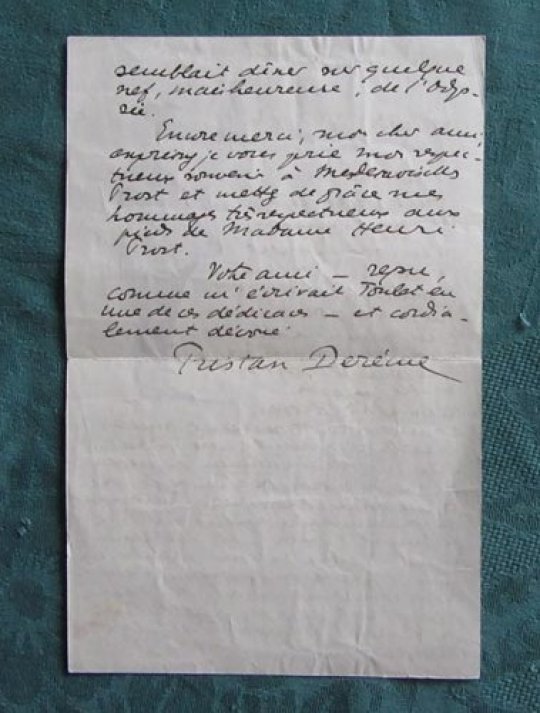 semblait dîner sur quelque
nef, mais heureuse, de l'Odys-
sée.
Encore merci, mon cher ami,
exprimez je vous prie mon respec-
tueux souvenir à Mesdemoiselles
Prost et mettez de grâce mes
hommages très respectueux aux
pieds de Madame Henri
Prost.
Votre ami —
comme m'écrivait Toulet en
une de ses dédicaces — et cordia-
lement dévoué
Tristan Derème